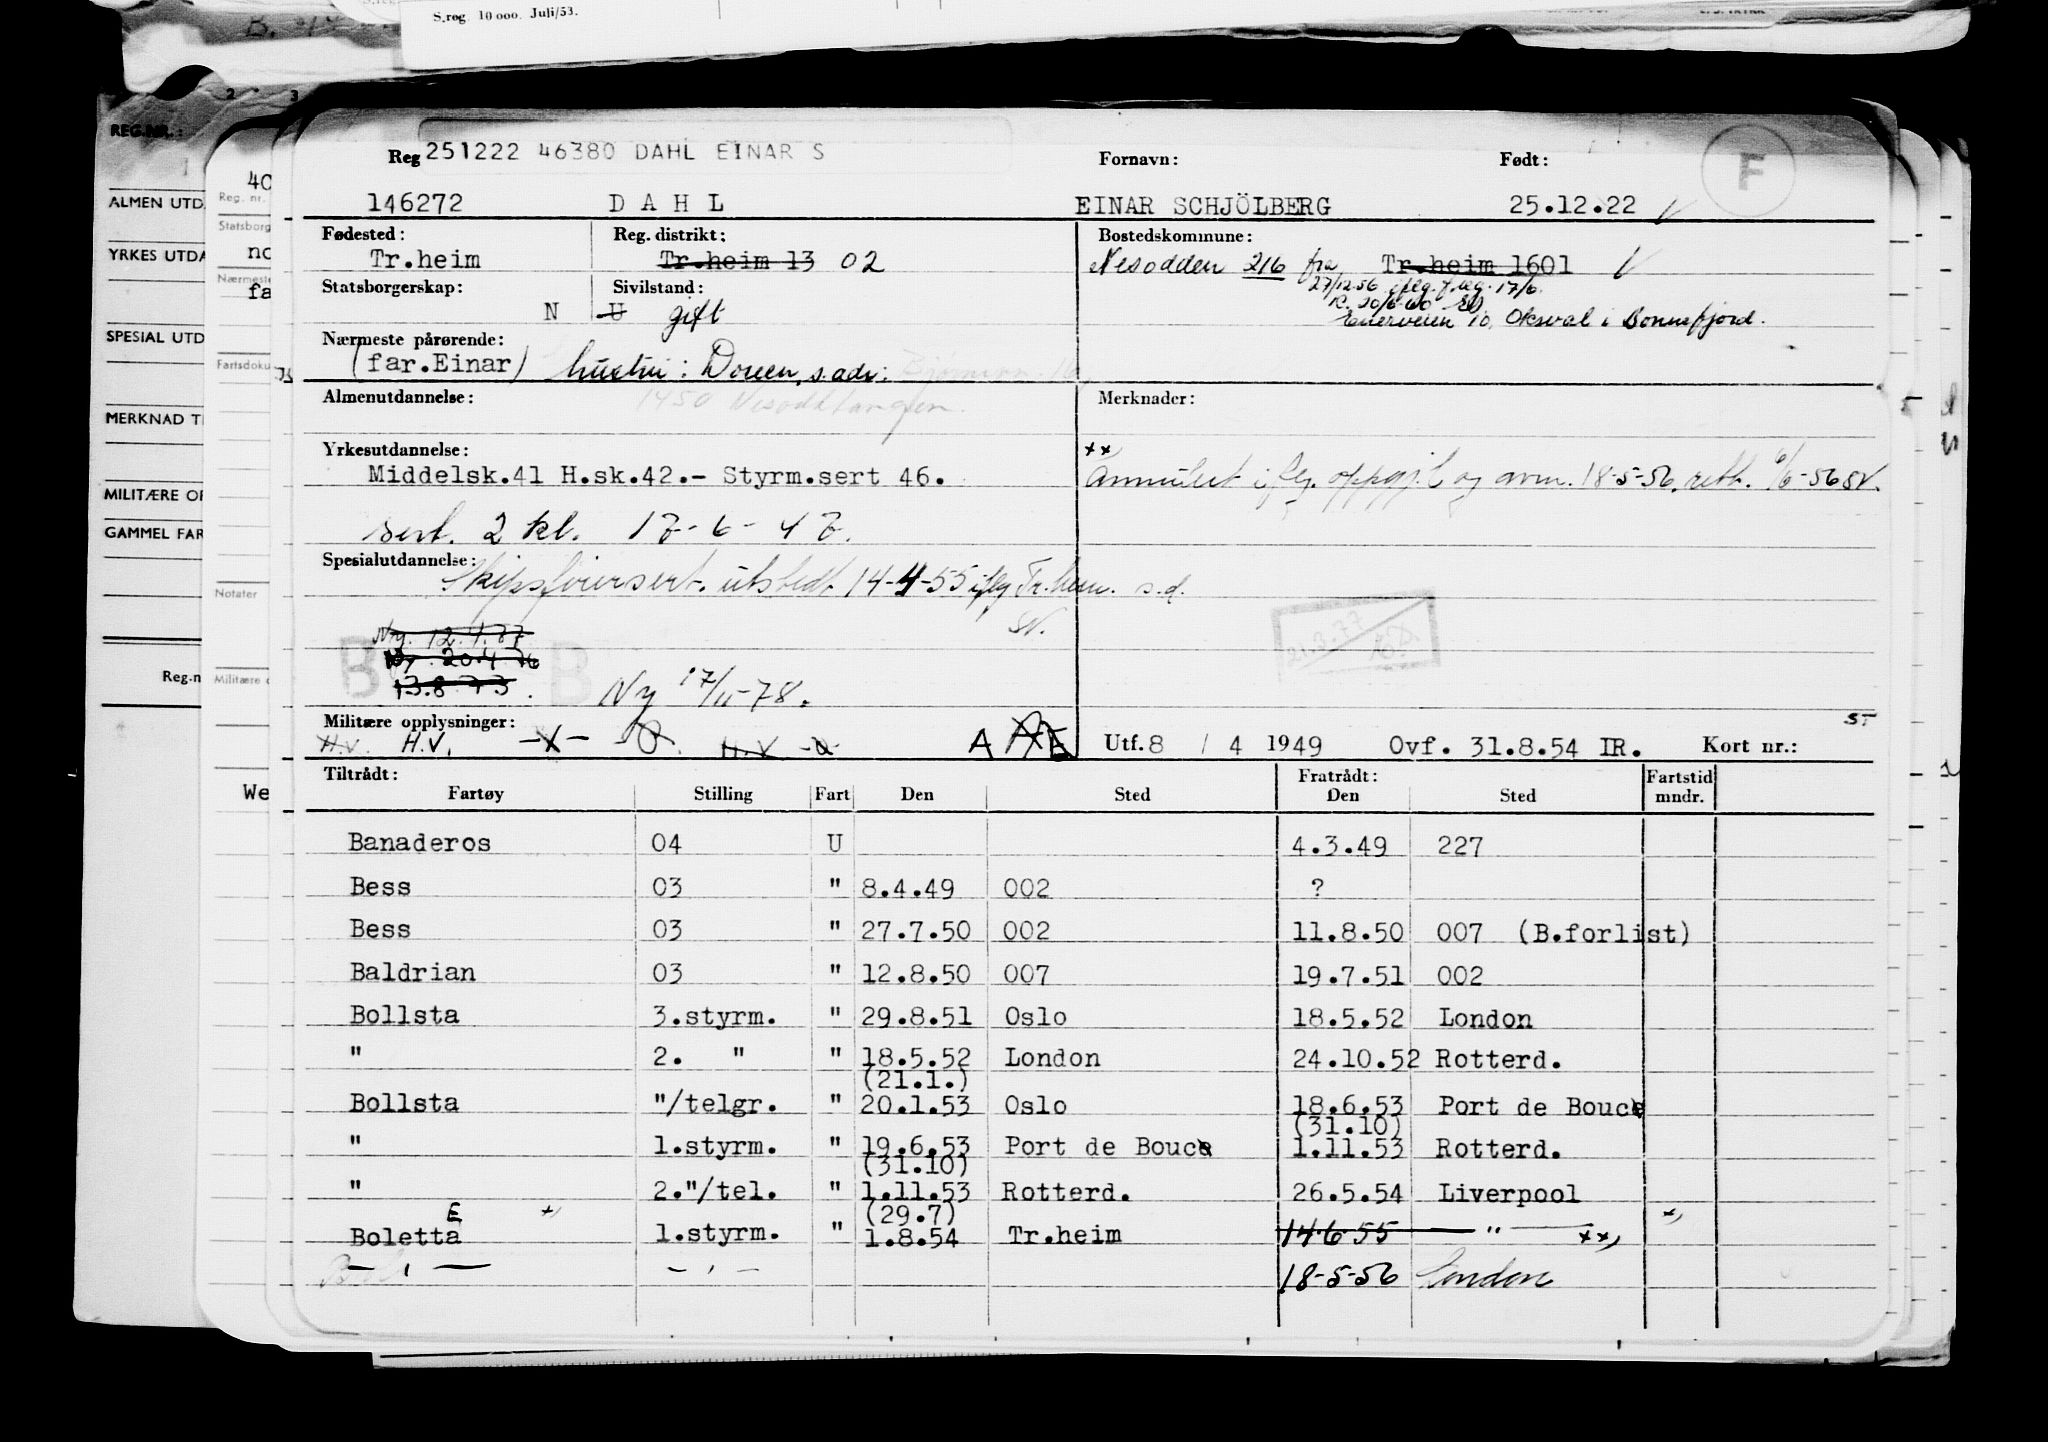 S.reg 10 000. Juli/53.
2 3
REG.NR.:
ALMEN UTD.
YRKES UTDA
SPECIAL UTD
MERKNAD TI
MILITÆRE OP
GAMMEL FAR
Reg.n
40
Reg. nr.
Statsborg
no
Nærmeste
fa
Fartsdoku
Notater
Militære o
We
Reg 251222 46380 DAHL EINAR S Fornavn: Født: F
146272 D A H L EINAR SCHJÖLBERG 25.12.22
Fødested: Reg. distrikt: Bostedskommune:
Tr.heim Tr.heim 13 02 Nesodden 216 fra Tr.heim 1601
27/12-56 iflg. f.reg. 17/6.
Statsborgerskap: Sivilstand:
R. 20/6-60
N U gift Oksval i Bonnefjord.
Nærmeste pårørende:
(far.Einar) hustru: Doreen, s.adr:
Almenutdannelse: 1450 Nesoddtangen. Merknader:
Yrkesutdannelse: xx,
Middelsk.41 H.sk.42.- Styrm.sert 46. Annulert iflg. oppgj.l og avm. 18-5-56. rett. 6/6-56 SV.
sert. 2 kl. 17-6-47.
Spesialutdannelse:
Skipsførersert. utstedt 14-4-55 iflg Tr.heim. s.d.
SV.
Ny. 12.1.77 21.3.77
Ny. 20.4.76
13.8.73. Ny 17/11-78.
B B
Militære opplysninger: ST
H.V. H.V. -X- H.V. A Utf. 8 / 4 1949 Ovf. 31.8.54 IR. Kort nr.:
Tiltrådt: Fratrådt: Fartstid
Fartøy Stilling Fart Den Sted Den Sted mndr.
Banaderos 04 U 4.3.49 227
Bess 03 " 8.4.49 002 ?
Bess 03 " 27.7.50 002 11.8.50 007 (B.forlist)
Baldrian 03 " 12.8.50 007 19.7.51 002
Bollsta 3.styrm. " 29.8.51 Oslo 18.5.52 London
" 2. " " 18.5.52 London 24.10.52 Rotterd.
(21.1.)
Bollsta "/telgr. " 20.1.53 Oslo 18.6.53 Port de Bouc
(31.10)
" 1.styrm. " 19.6.53 Port de Bouc 1.11.53 Rotterd.
(31.10)
" 2."/tel. " 1.11.53 Rotterd. 26.5.54 Liverpool
E x, (29.7) x,
Boletta 1.styrm. " 1.8.54 Tr.heim 14-6-55 — " — xx,
— , — — , — 18-5-56 London